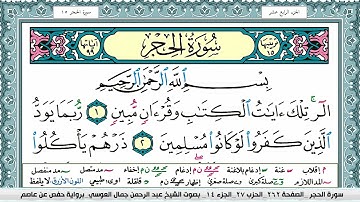 سورة الحجر ١٥
الجزء الرابع عشر
سُورَةُ الحِجْرِ
ترتيبها ١٥
آياتها ٩٩
بِسْمِ اللَّهِ الرَّحْمَٰنِ الرَّحِيمِ
الٓر ۚ تِلْكَ ءَايَٰتُ ٱلْكِتَٰبِ وَقُرْءَانٍ مُّبِينٍ ١ رُّبَمَا يَوَدُّ
ٱلَّذِينَ كَفَرُوا۟ لَوْ كَانُوا۟ مُسْلِمِينَ ٢ ذَرْهُمْ يَأْكُلُوا۟
سورة الحجر الصفحة ٢٦٢ الحزب ٢٧ الجزء ١٤ بصوت الشيخ عبد الرحمن جمال العوسي برواية حفص عن عاصم